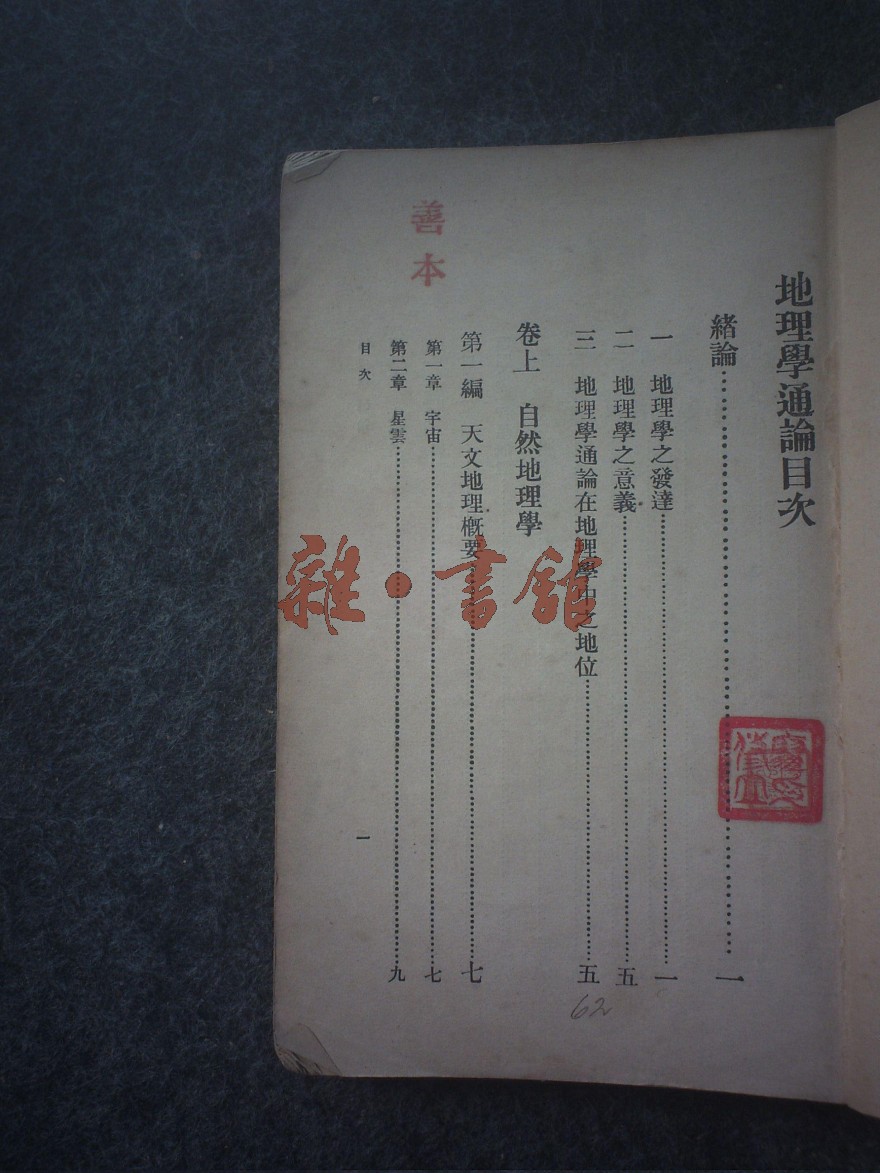 地理學通論目次
緒論……一
一　地理學之發達……一
二　地理學之意義……五
三　地理學通論在地理學中之地位……五
卷上　自然地理學
第一編　天文地理概要……七
第一章　宇宙……七
第二章　星雲……九
目次
一
善本
雜·書館
62